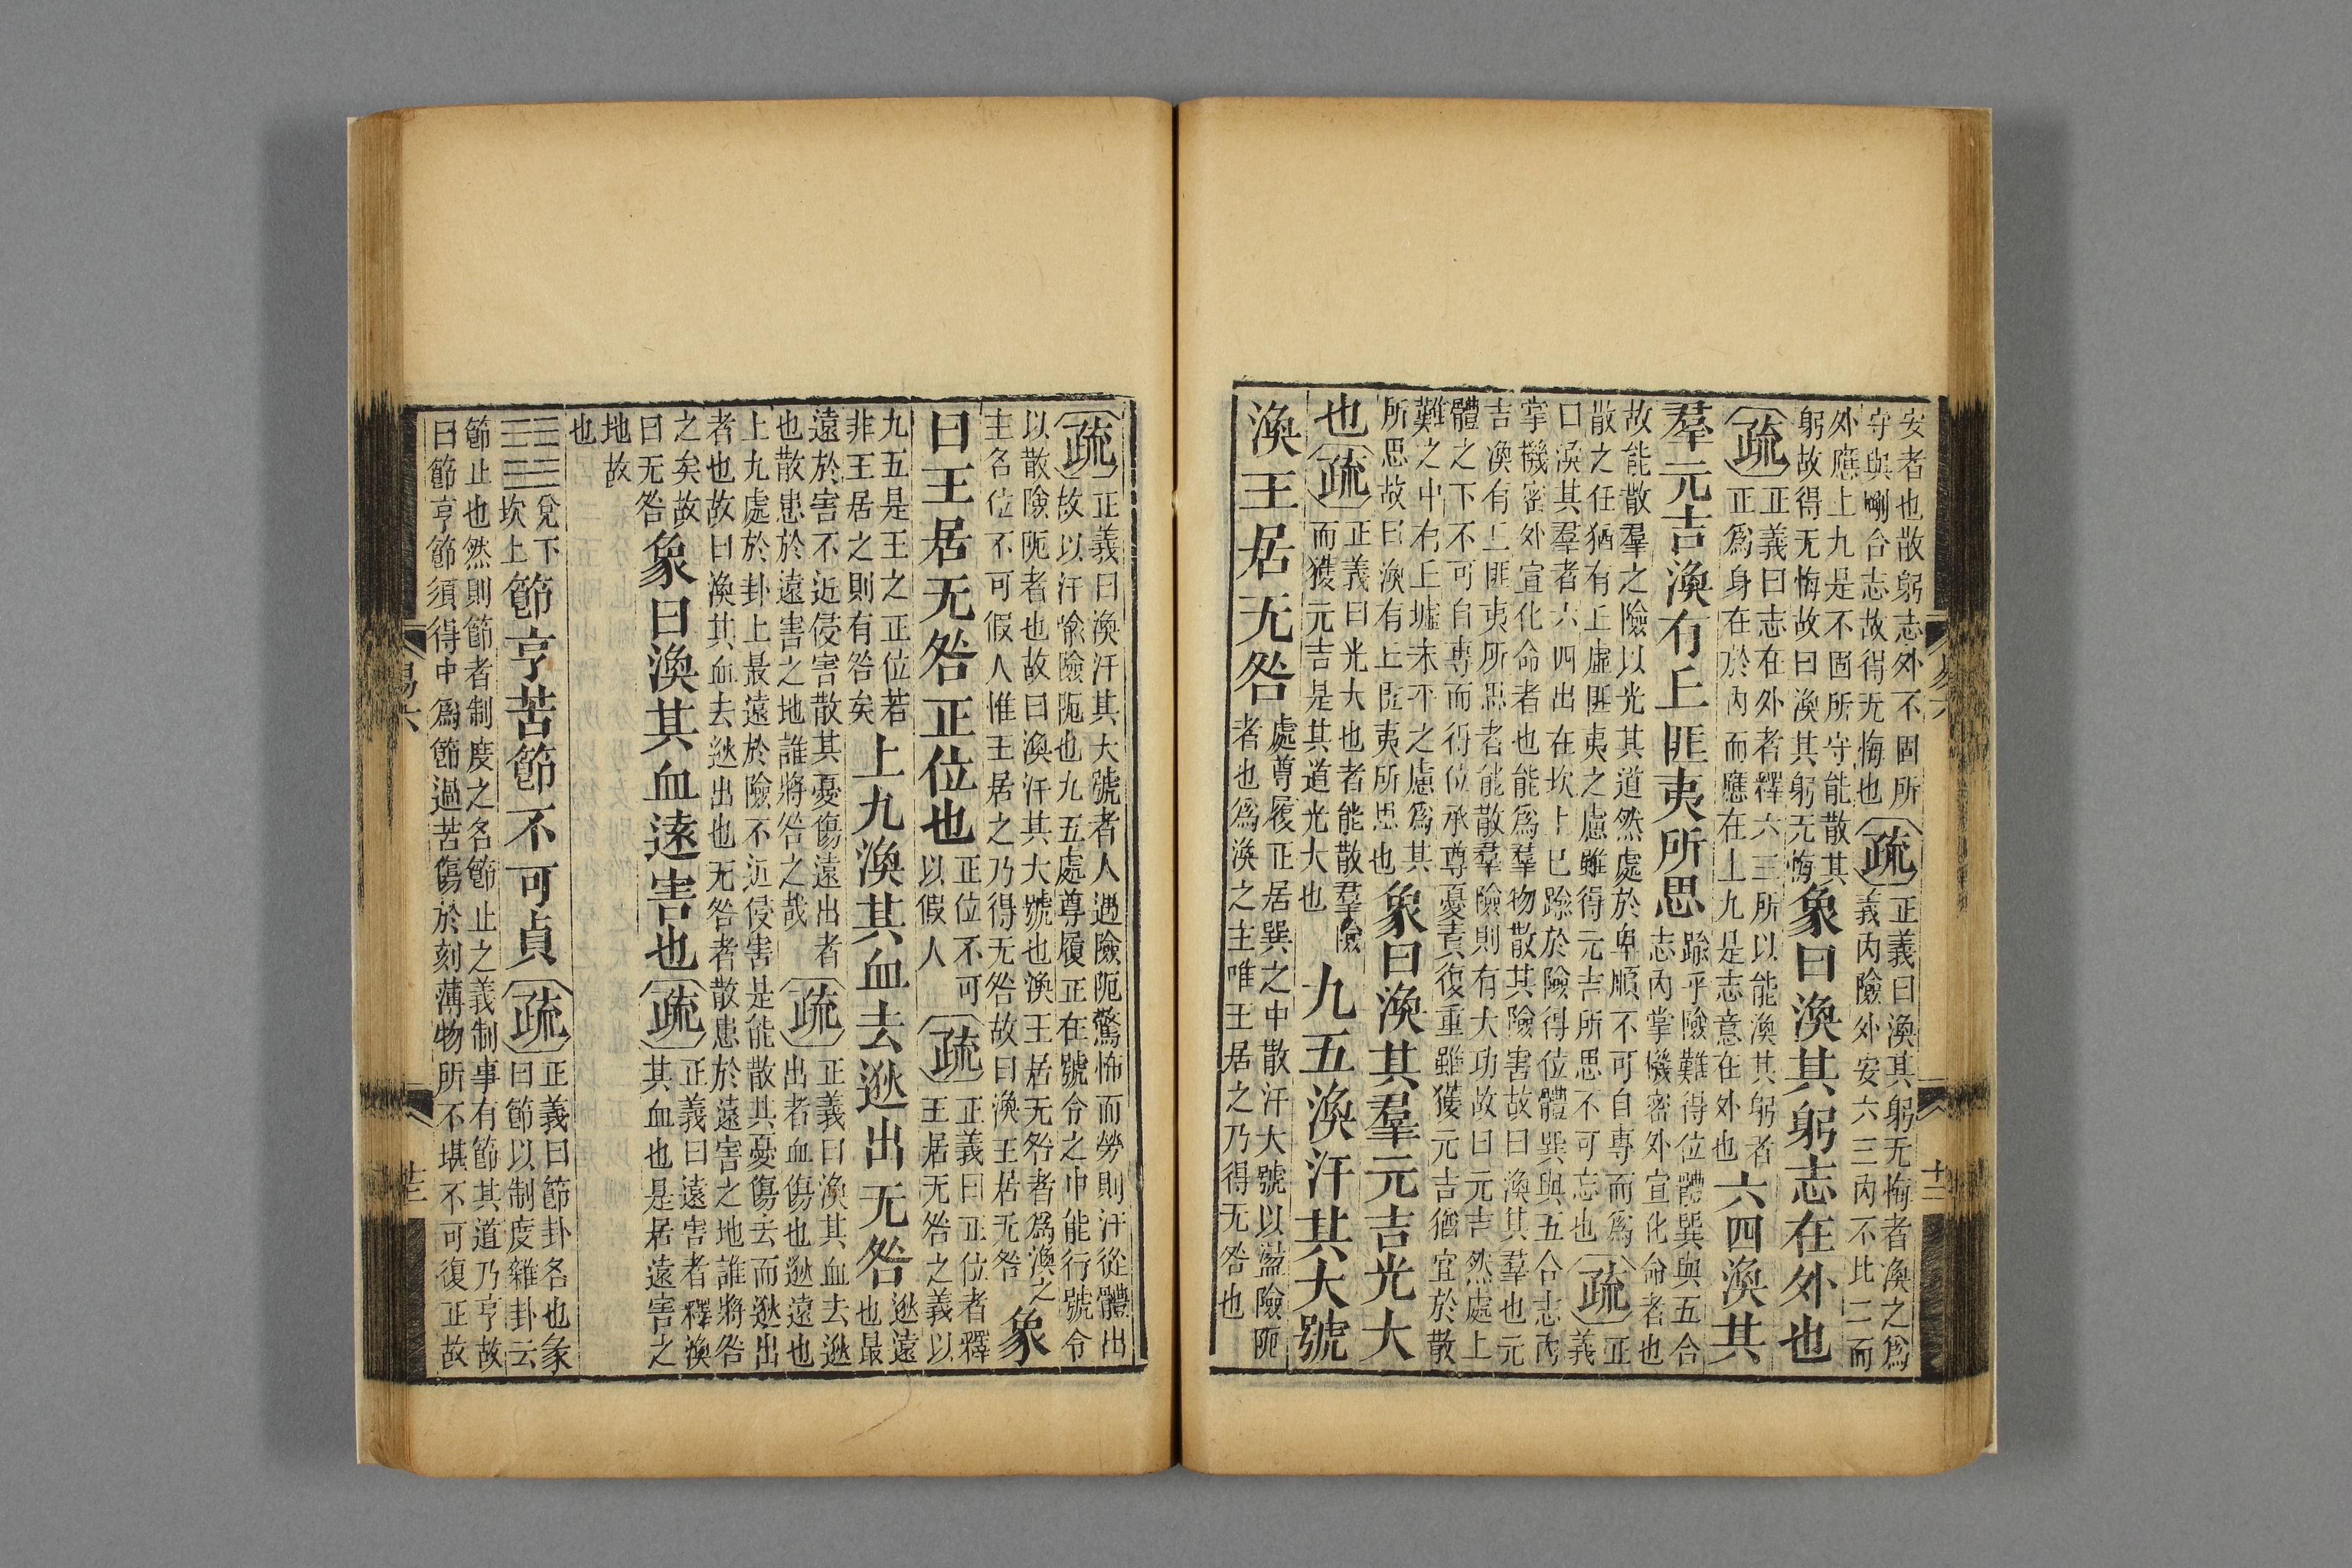 安者也散躬志外不固所
守與剛合志故得无悔也
疏
正義曰渙其躬无悔者渙之爲
義內險外安六三內不比二而
外應上九是不固所守能散其
躬故得无悔故曰渙其躬无悔
象曰渙其躬志在外也
疏
正義曰志在外者釋六三所以能渙其躬者
正爲身在於內而應在上九是志意在外也
六四渙其
羣元吉渙有丘匪夷所思
踰乎險難得位體巽與五合
志內掌機密外宣化命者也
故能散羣之險以光其道然處於卑順不可自專而爲
散之任猶有丘虛匪夷之慮雖得元吉所思不可忘也
疏
正
義
曰渙其羣者六四出在坎上已踰於險得位體巽與五合志內
掌機密外宣化命者也能爲羣物散其險害故曰渙其羣也元
吉渙有丘匪夷所思者能散羣險則有大功故曰元吉然處上
體之下不可自專而得位承尊憂責復重雖獲元吉猶宜於散
難之中有丘墟未平之慮爲其
所思故曰渙有丘匪夷所思也
象曰渙其羣元吉光大
也
疏
正義曰光大也者能散羣險
而獲元吉是其道光大也
九五渙汗其大號
渙王居无咎
處尊履正居巽之中散汗大號以盪險阨
者也爲渙之主唯王居之乃得无咎也
易六
十二
疏
正義曰渙汗其大號者人遇險阨驚怖而勞則汗從體出
故以汗喻險阨也九五處尊履正在號令之中能行號令
以散險阨者也故曰渙汗其大號也渙王居无咎者爲渙之
主名位不可假人惟王居之乃得无咎故曰渙王居无咎
象
曰王居无咎正位也
正位不可
以假人
疏
正義曰正位者釋
王居无咎之義以
九五是王之正位若
非王居之則有咎矣
上九渙其血去逖出无咎
逖遠
也最
遠於害不近侵害散其憂傷遠出者
也散患於遠害之地誰將咎之哉
疏
正義曰渙其血去逖
出者血傷也逖遠也
上九處於卦上最遠於險不近侵害是能散其憂傷去而逖出
者也故曰渙其血去逖出也无咎者散患於遠害之地誰將咎
之矣故
曰无咎
象曰渙其血遠害也
疏
正義曰遠害者釋渙
其血也是居遠害之
地故
也
兌下
坎上
節亨苦節不可貞
疏
正義曰節卦名也彖
曰節以制度雜卦云
節止也然則節者制度之名節止之義制事有節其道乃亨故
曰節亨節須得中爲節過苦傷於刻薄物所不堪不可復正故
易六